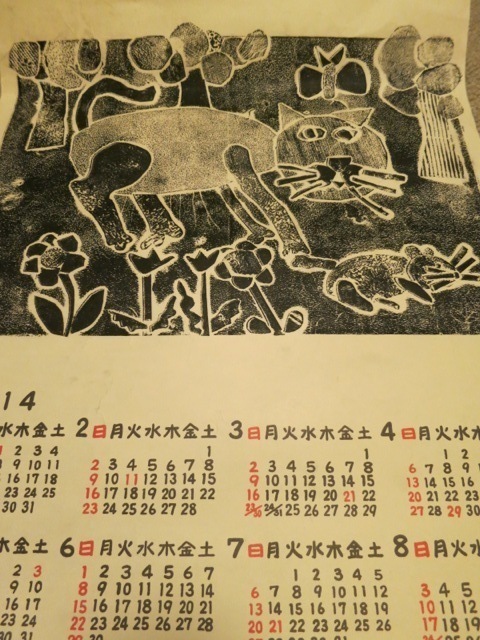 14
水木金土 2日月火水木金土 3日月火水木金土 4日月火
1 2 3 4 1 1 1 2
8 9 10 11 2 3 4 5 6 7 8 2 3 4 5 6 7 8 6 7 8 9
15 16 17 18 9 10 11 12 13 14 15 9 10 11 12 13 14 15 13 14 15 16
23 24 25 16 17 18 19 20 21 22 16 17 18 19 20 21 22 20 21 22 23
30 31 23 24 25 26 27 28 23/30 24/31 25 26 27 28 29 27 28 29 30
木金土 6日月火水木金土 7日月火水木金土 8日月火
2 3 1 2 3 4 5 6 7 1 2 3 4 5
9 10 8 9 10 11 12 13 14 6 7 8 9 10 11 12 3 4 5
16 17 15 16 17 18 19 20 21 13 14 15 16 17 18 19 10 11 12
23 24 22 23 24 25 26 27 28 20 21 22 23 24 25 26 17 18 19
30 31 29 30